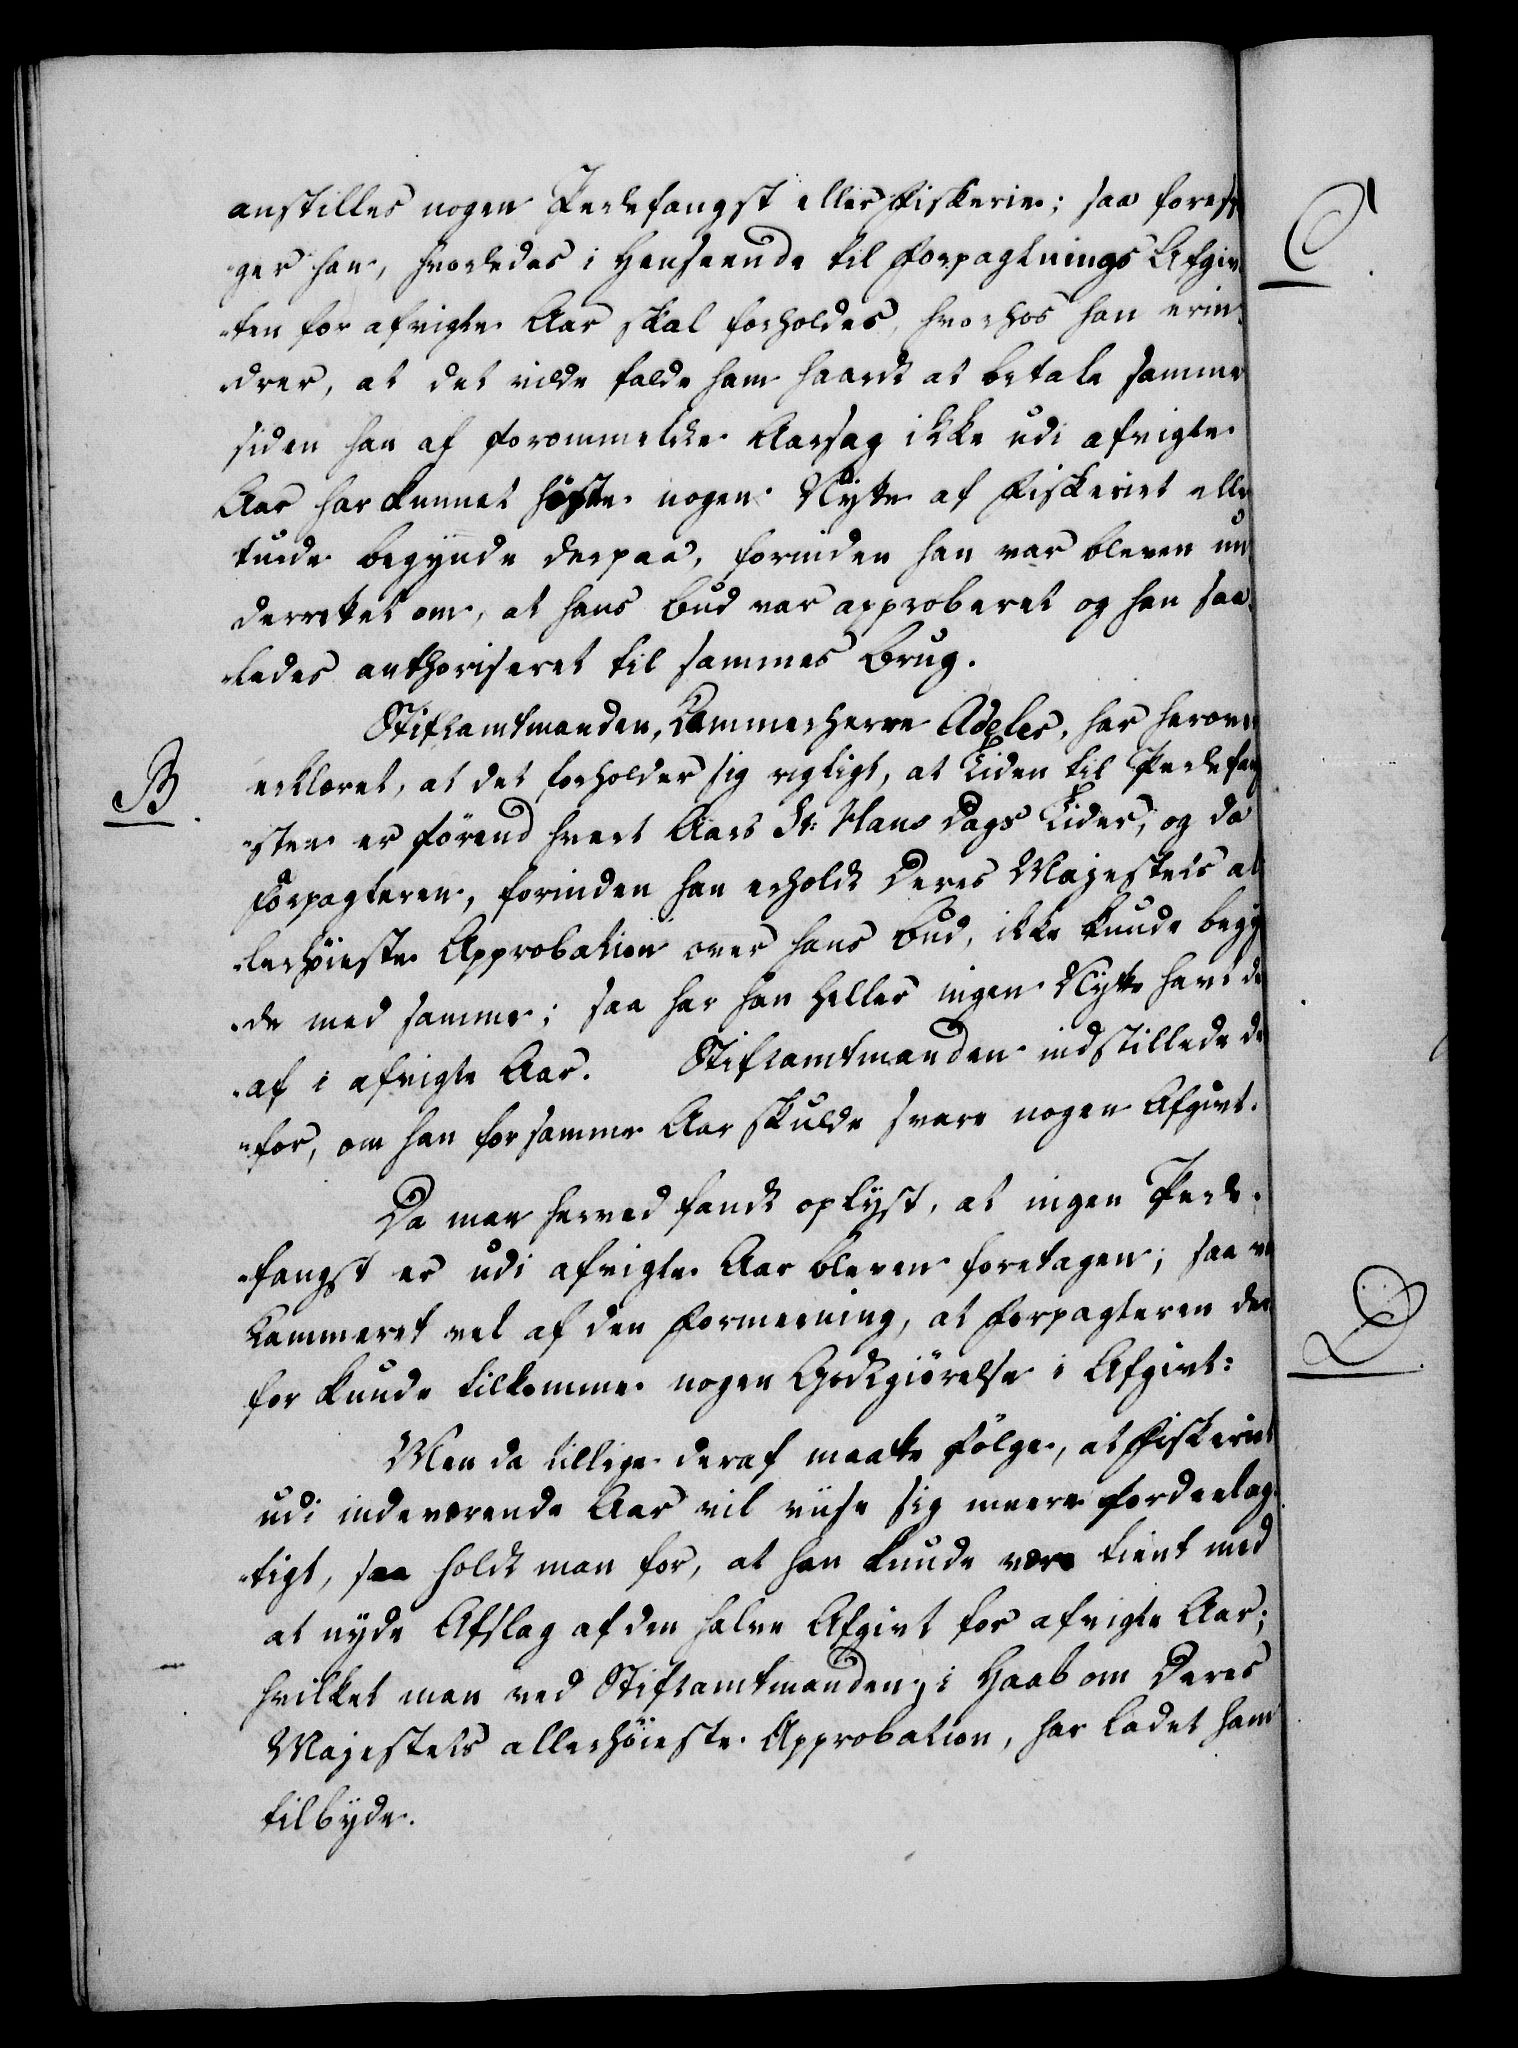 anstilles nogen Perlefangst eller Fiskerie; saa foresp
ger han, hvorledes i Henseende til Forpagtnings Afgiv
ten for afvigte Aar skal forholdes, hvorhos han erin
drer, at det vilde falde ham haardt at betale samme
siden han af forommeldte Aarsag ikke udi afvigte
Aar har kunnet høste nogen Nytte af Fiskeriet elle
turde begynde derpaa, forinden han var bleven un
derrettet om, at hans Bud var approberet og han saa
ledes authoriseret til sammes Brug.
Stiftamtmanden, Cammerherre Adeler, har herover
B.
erklæret, at det forholder sig rigtigt, at Tiden til Perlefang
sten er førend hvert Aars St: Hans Dags Tider; og da
Forpagteren, forinden han erholdt Deres Majestets al
lerhöieste Approbation over hans Bud, ikke kunde begyn
de med samme; saa har han heller ingen Nytte havt de
af i afvigte Aar. Stiftamtmanden indstillede de
for, om han for samme Aar skulde svare nogen Afgivt.
Da man herved fandt oplyst, at ingen Perle
fangst er udi afvigte Aar bleven foretagen; saa va
Cammeret vel af den Formeening, at Forpagteren der
for kunde tilkomme nogen Godtgiörelse i Afgivt:
Men da tillige deraf maatte følge, at Fiskeriet
udi indeværende Aar vil viise sig meere fordeelag
tigt, saa holdt man for, at han kunde være tient med
at nyde Afslag af den halve Afgivt for afvigte Aar;
hvilket man ved Stiftamtmanden, i Haab om Deres
Majestets allerhöieste Approbation, har ladet ham
tilbyde.
C.
D.